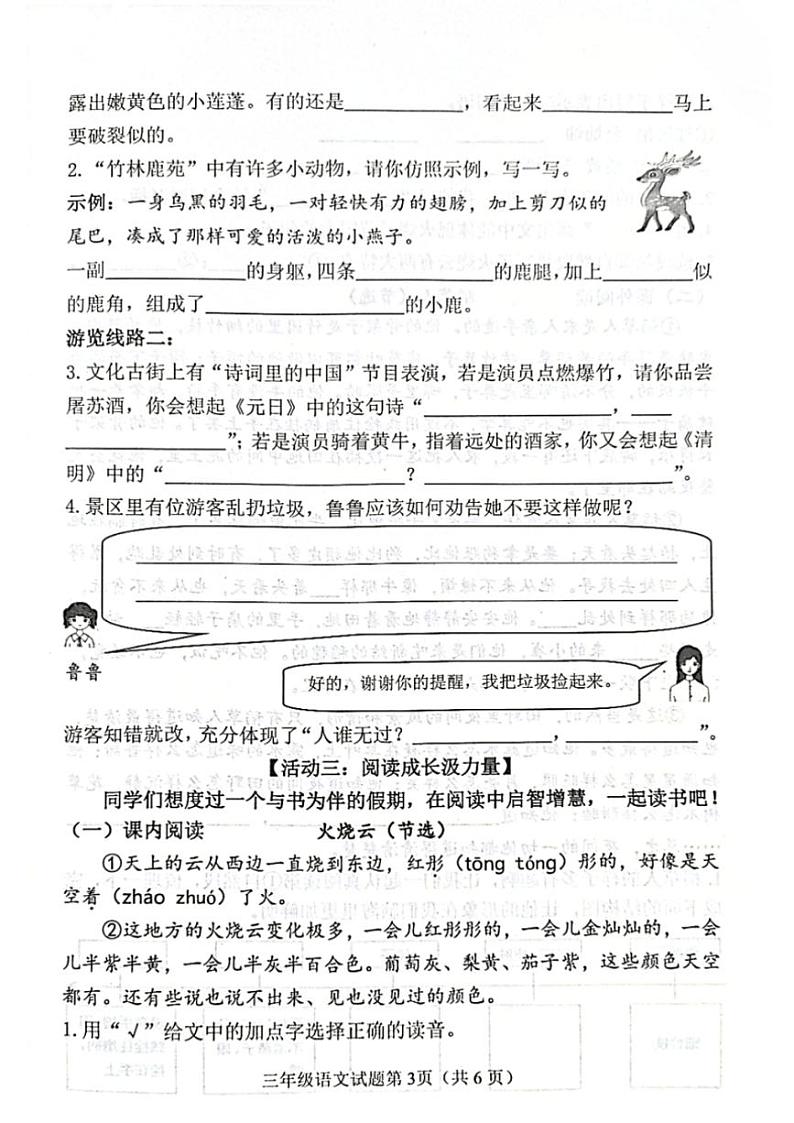 露出嫩黄色的小莲蓬。有的还是____________,看起来______________马上
要破裂似的。
2.“竹林鹿苑”中有许多小动物,请你仿照示例,写一写。
示例:一身乌黑的羽毛,一对轻快有力的翅膀,加上剪刀似的
尾巴,凑成了那样可爱的活泼的小燕子。
一副______________的身躯,四条______________的鹿腿,加上_________似
的鹿角,组成了____________________的小鹿。
游览线路二:
3.文化古街上有“诗词里的中国”节目表演,若是演员点燃爆竹,请你品尝
屠苏酒,你会想起《元日》中的这句诗“___________________,____
________________”;若是演员骑着黄牛,指着远处的酒家,你又会想起《清
明》中的“________________________?________________________”。
4.景区里有位游客乱扔垃圾,鲁鲁应该如何劝告她不要这样做呢?
鲁鲁
好的,谢谢你的提醒,我把垃圾捡起来。
游客知错就改,充分体现了“人谁无过?______________,_____________”。
【活动三:阅读成长汲力量】
同学们想度过一个与书为伴的假期,在阅读中启智增慧,一起读书吧!
(一)课内阅读 火烧云(节选)
①天上的云从西边一直烧到东边,红彤(tōng tóng)彤的,好像是天
空着(zháo zhuó)了火。
②这地方的火烧云变化极多,一会儿红彤彤的,一会儿金灿灿的,一会
儿半紫半黄,一会儿半灰半百合色。葡萄灰、梨黄、茄子紫,这些颜色天空
都有。还有些说也说不出来、见也没见过的颜色。
1.用“√”给文中的加点字选择正确的读音。
三年级语文试题第3页(共6页)